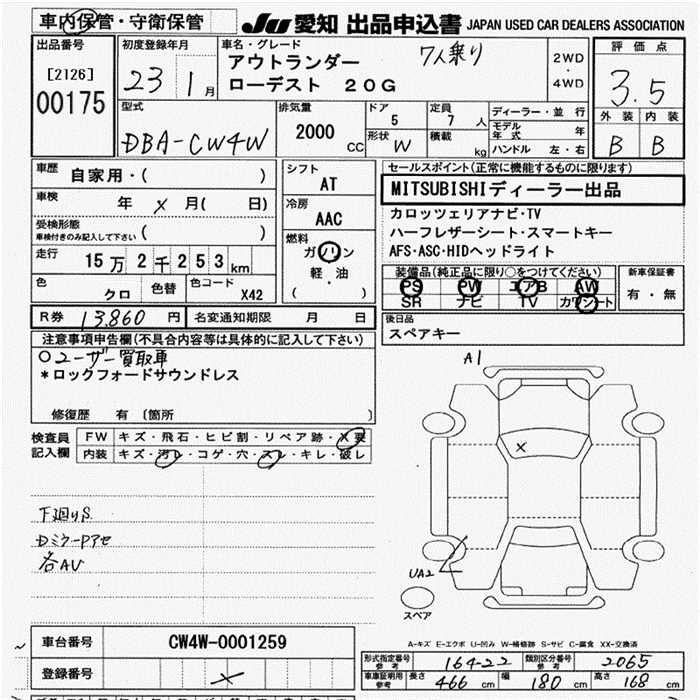 車内保管・守衛保管
JU 愛知 出品申込書 JAPAN USED CAR DEALERS ASSOCIATION
出品番号
[2126]
00175
初度登録年月
23 1月
車名・グレード
アウトランダー 7人乗り
ローデスト 20G
2WD
・
4WD
評価点
3.5
外装 内装
B B
型式
DBA-CW4W
排気量
2000 CC
ドア
5
形状 W
定員
7 人
積載
kg
ディーラー・並行
モデル年式 年
ハンドル 左・右
車歴
自家用・( )
車検
年 メ 月( 日)
受検形態
車検付きのみ記入して下さい ( )
走行 15万2千253km
色 クロ
色替
色コード X42
シフト
AT
冷房
AAC
燃料
ガソリン
軽・油
( )
セールスポイント(正常に機能するものに限ります)
MITSUBISHIディーラー出品
カロッツェリアナビ・TV
ハーフレザーシート・スマートキー
AFS・ASC・HIDヘッドライト
装備品(純正品に限り○をつけてください)
PS PW エアB AW
SR ナビ TV カワシート
新車保証書
有・無
R券 13,860 円
名変通知期限 月 日
後日品
スペアキー
注意事項申告欄(不具合内容等は具体的に記入して下さい)
○ユーザー買取車
*ロックフォードサウンドレス
修復歴 有〔箇所 〕
検査員記入欄
FW キズ・飛石・ヒビ割・リペア跡・X要
内装 キズ・汚レ・コゲ・穴・スレ・キレ・破レ
下廻りS
Dミラーアセ
各AU
A1
X
UA2
スペア
A-キズ E-エクボ U-凹み W-補修跡 S-サビ C-腐食 XX-交換済
車台番号 CW4W-0001259
登録番号 メ
形式指定番号 参考 164-22
類別区分番号 参考 2065
車車証明用 参考 長さ 466 cm 幅 180 cm 高さ 168 cm